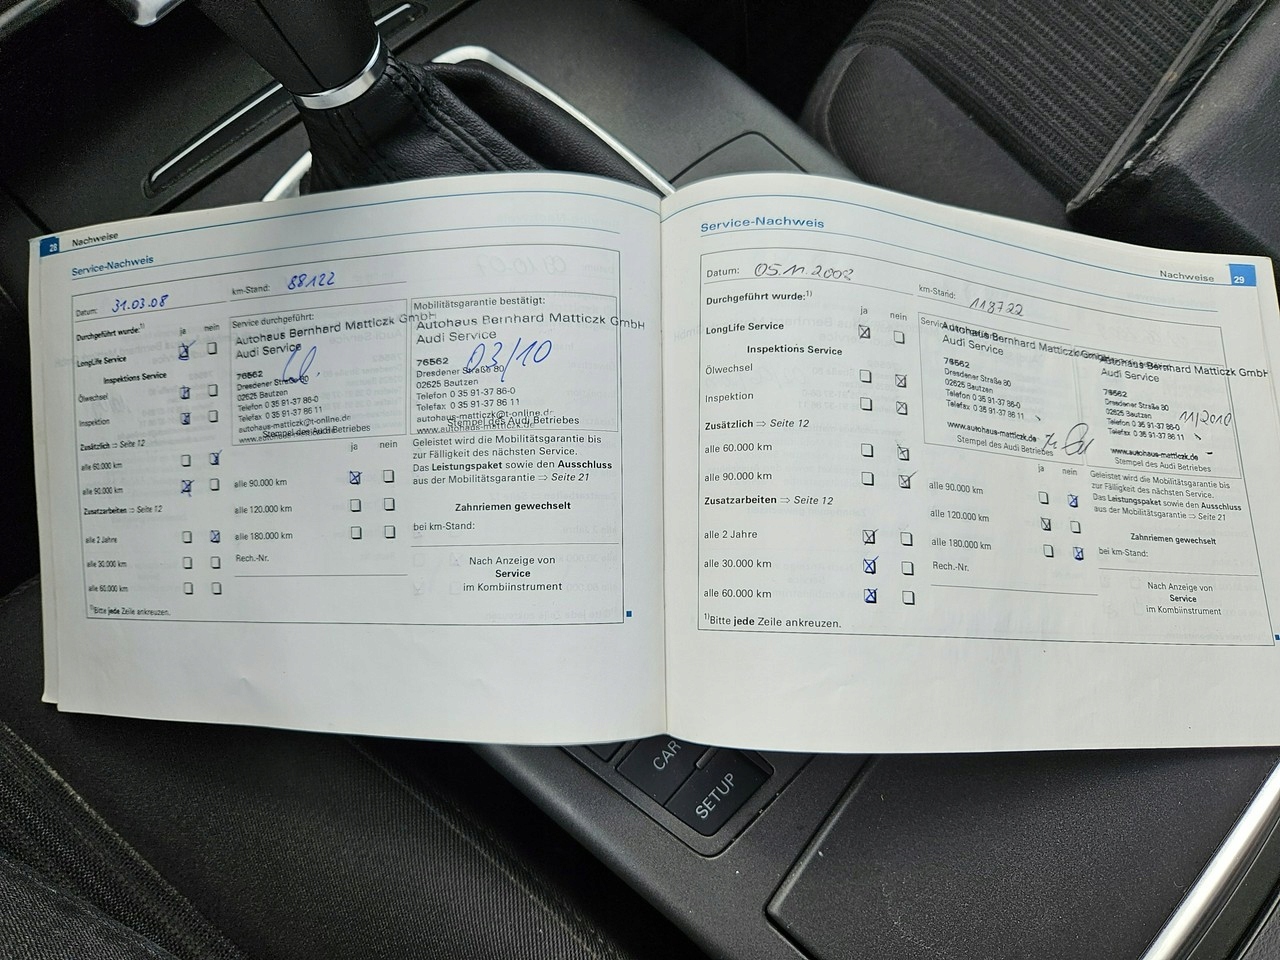 28 Nachweise
Service-Nachweis
Datum: 31.03.08
km-Stand: 88122
Durchgeführt wurde:1)
ja nein
LongLife Service
Inspektions Service
Ölwechsel
Inspektion
Zusätzlich ⇒ Seite 12
alle 60.000 km
alle 90.000 km
Zusatzarbeiten ⇒ Seite 12
alle 2 Jahre
alle 30.000 km
alle 60.000 km
1)Bitte jede Zeile ankreuzen.
Service durchgeführt:
Autohaus Bernhard Matticzk GmbH
Audi Service
76562
Dresdener Straße 80
02625 Bautzen
Telefon 0 35 91-37 86-0
Telefax 0 35 91-37 86 11
autohaus-matticzk@t-online.de
www.autohaus-matticzk.de
Stempel des Audi Betriebes
ja nein
alle 90.000 km
alle 120.000 km
alle 180.000 km
Rech.-Nr.
Mobilitätsgarantie bestätigt:
Autohaus Bernhard Matticzk GmbH
Audi Service
03/10
76562
Dresdener Straße 80
02625 Bautzen
Telefon 0 35 91-37 86-0
Telefax 0 35 91-37 86 11
autohaus-matticzk@t-online.de
www.autohaus-matticzk.de
Stempel des Audi Betriebes
Geleistet wird die Mobilitätsgarantie bis
zur Fälligkeit des nächsten Service.
Das Leistungspaket sowie den Ausschluss
aus der Mobilitätsgarantie ⇒ Seite 21
Zahnriemen gewechselt
bei km-Stand:
Nach Anzeige von
Service
im Kombiinstrument
Service-Nachweis
Nachweise 29
Datum: 05.11.2008
km-Stand: 118722
Durchgeführt wurde:1)
ja nein
LongLife Service
Inspektions Service
Ölwechsel
Inspektion
Zusätzlich ⇒ Seite 12
alle 60.000 km
alle 90.000 km
Zusatzarbeiten ⇒ Seite 12
alle 2 Jahre
alle 30.000 km
alle 60.000 km
1)Bitte jede Zeile ankreuzen.
Autohaus Bernhard Matticzk GmbH
Audi Service
76562
Dresdener Straße 80
02625 Bautzen
Telefon 0 35 91-37 86-0
Telefax 0 35 91-37 86 11
www.autohaus-matticzk.de
Stempel des Audi Betriebes
ja nein
alle 90.000 km
alle 120.000 km
alle 180.000 km
Rech.-Nr.
Autohaus Bernhard Matticzk GmbH
Audi Service
76562
Dresdener Straße 80
02625 Bautzen
Telefon 0 35 91-37 86-0
Telefax 0 35 91-37 86 11
11/2010
www.autohaus-matticzk.de
Stempel des Audi Betriebes
Geleistet wird die Mobilitätsgarantie bis
zur Fälligkeit des nächsten Service.
Das Leistungspaket sowie den Ausschluss
aus der Mobilitätsgarantie ⇒ Seite 21
Zahnriemen gewechselt
bei km-Stand:
Nach Anzeige von
Service
im Kombiinstrument
CAR
SETUP